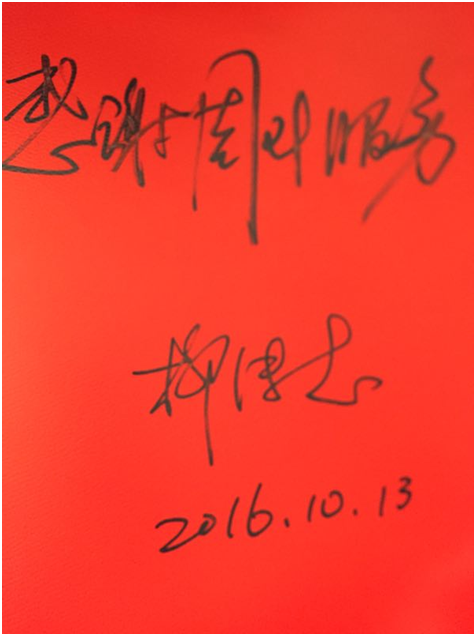 感谢周到服务
柳传志
2016.10.13